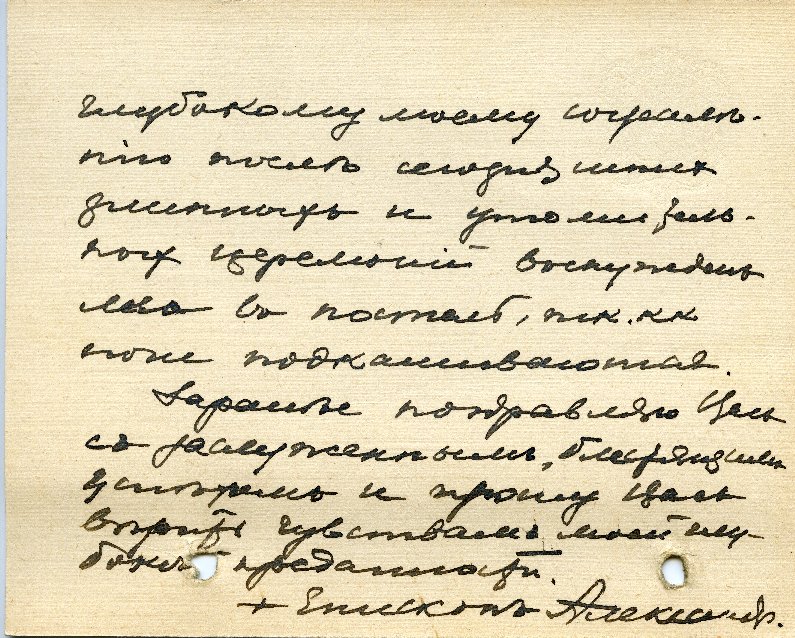 глубокому моему сожалѣ-
нію послѣ сегодняшних
длинныхъ и утомитель-
ных церемоній вынужденъ
лечь въ постель, т.к.
ноги подкашиваются.
Заранѣе поздравляю Васъ
съ заслуженнымъ, блестящимъ
успѣхомъ и прошу Васъ
вѣрить чувствамъ моей глу-
бокой преданности.
+ Епископъ Александръ.